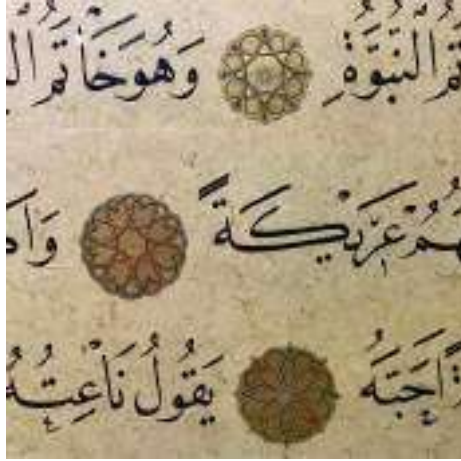 تَمُ النُّبُوَّةِ وَهُوَ خَاتَمُ
هُمْ عَرِيكَةً
أَحَبَّهُ يَقُولُ نَاعِتُهُ